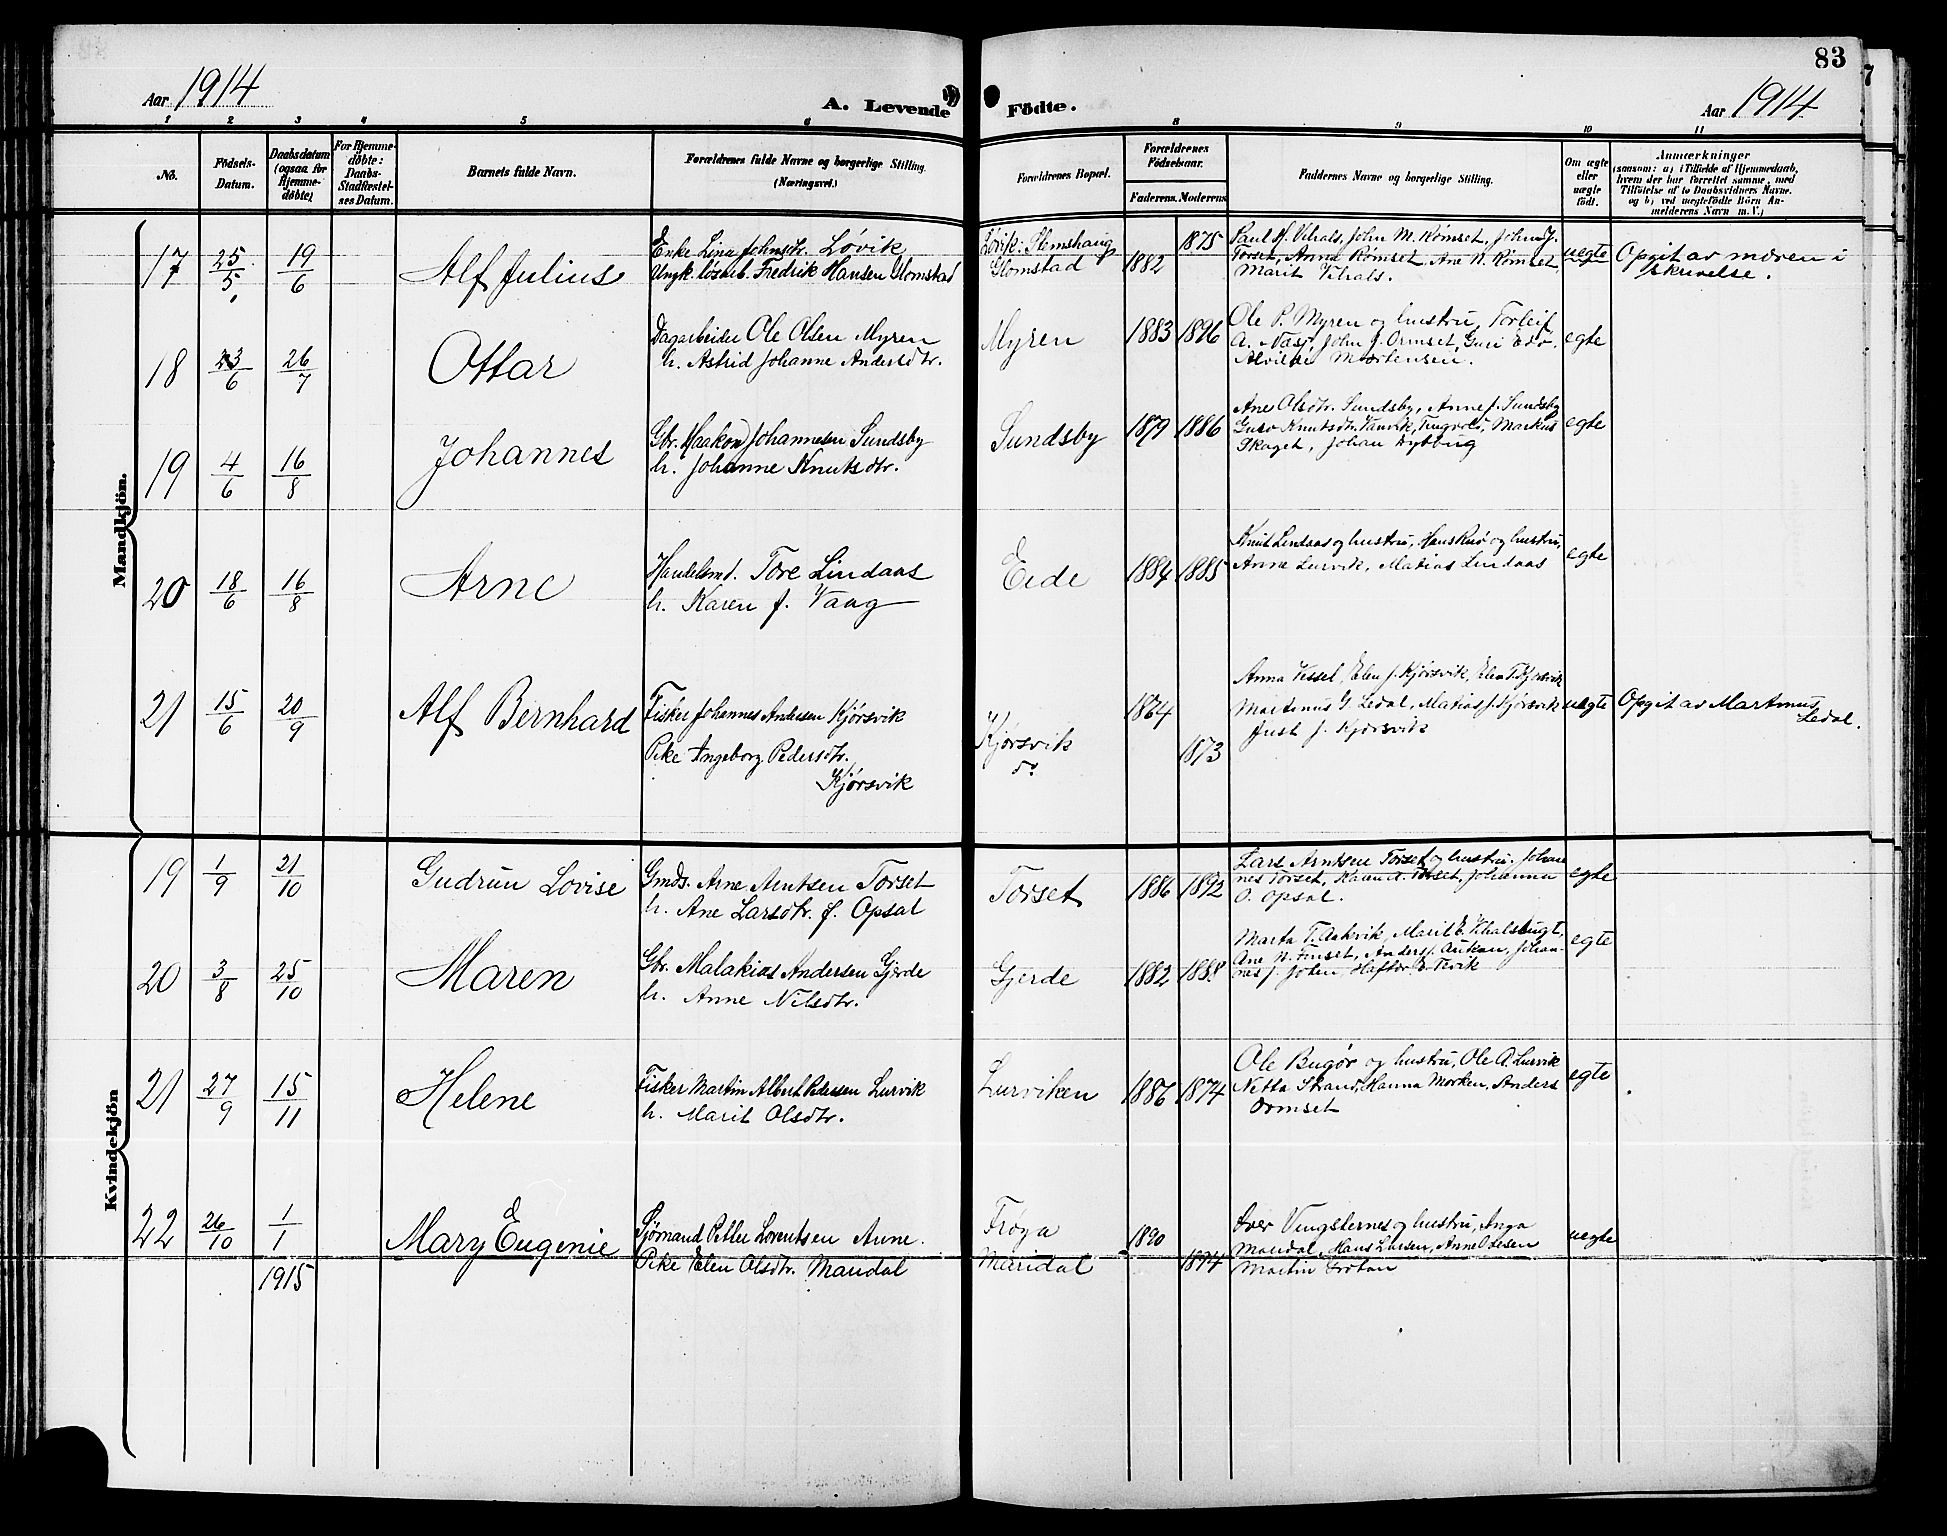 83
Aar 1914
A. Levende Födte.
Aar 1914
1 2 3 4 5 6 8 9 10 11
No.
Födsels-
Datum.
Daabsdatum
(ogsaa for
Hjemme-
døbte)
For Hjemme-
døbte:
Daabs-
Stadfæstel-
ses Datum.
Barnets fulde Navn.
Forældrenes fulde Navne og borgerlige Stilling.
(Næringsvei.)
Forældrenes Bopæl.
Forældrenes
Födselsaar.
Faderens. Moderens
Faddernes Navne og borgerlige Stilling.
Om ægte
eller
uægte
födt.
Anmærkninger
(saasom: a) i Tilfælde af Hjemmedaab,
hvem der har forrettet samme, med
Tilföielse af to Daabsvidners Navne.
og b) ved uægtefödte Börn An-
melderens Navn m. V.)
Mandkjön.
17 25/5 19/6 Alf Julius
Enke Lina Johnsdtr. Løvik
Ungk. løsarb. Fredrik Hansen Glomstad
Løvik: Stemshaug
Glomstad
1882 1875
Paul H. Vihals, John M. Rømset, John J.
Torset, Anna Rømset, Ane N. Rømset,
Marit Vihals.
uegte
Opgit av moren i
skrivelse.
18 23/6 26/7 Ottar
Dagarbeider Ole Olsen Myren
h. Astrid Johanne Andersdtr.
Myren
1883 1896
Ole P. Myren og hustru, Torleif
A. Næsø, John J. Ormset, Guri Edø,
Alvilde Mortensen.
egte
19 4/6 16/8 Johannes
Gbr. Haakon Johannesen Sundsby
h. Johanne Knutsdtr.
Sundsby
1879 1886
Ane Olsdtr. Sundsby, Anne J. Sundsby
Guro Knutsdtr. Vaavik, Tingvold, Markus
Skaget, Johan Nybbug
egte
20 18/6 16/8 Arne
Handelsmd. Tore Lindaas
h. Karen f. Vaag
Eide
1884 1885
Knut Lindaas og hustru, Hans Ruø og hustru,
Anne Lurvik, Matias Lindaas
egte
21 15/6 20/9 Alf Bernhard
Fisker Johannes Andersen Kjørsvik
Pike Ingeborg Pedersdtr.
Kjørsvik
Kjørsvik
do
1864
1873
Anna Vessel, Elen J. Kjørsvik, Elen T. Kjørsvik
Martinus G. Ledal, Matias J. Kjørsvik
Just J. Kjørsvik
uegte
Opgit av Martinus
Ledal.
Kvindekjön
19 1/9 21/10 Gudrun Lovise
Gmds. Arne Arntsen Torset
h. Ane Larsdtr. f. Opsal
Torset
1886 1892
Lars Arntsen Torset og hustru, Johan
nes Torset, Karen A. Torset, Johanna
O. Opsal.
egte
20 3/8 25/10 Maren
Gbr. Malakias Andersen Gjerde
h. Anne Nilsdtr.
Gjerde
1882 1888
Marta T. Aakvik, Marit E. Khalsbugt,
Ane N. Finset, Anders J. Aukan, Johan-
nes J. Johen, Haftor E. Tevik
egte
21 27/9 15/11 Helene
Fisker Martin Albert Pedersen Lurvik
h. Marit Olsdtr.
Lurviken
1886 1874
Ole Bugør og hustru, Ole A. Lurvik
Netta Strand, Hanna Morken, Anders
Ormset
egte
22 26/10 1/1 Mary Eugenie
1915
Sjømand Petter Lorentsen Aune.
Pike Elen Olsdtr. Mandal
Frøya
Mandal
1890
1894
Iver Vingsternes og hustru, Inga
Mandal, Hans Larsen, Anne Olsen
Martin
uegte